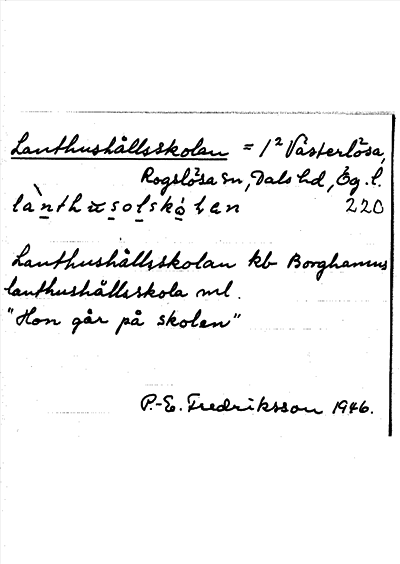 Lanthushållsskolan = 1² Västerlösa,
Rogslösa sn, Dals hd, Ög. l.
220
Lanthushållsskolan kb Borghamns
lanthushållsskola ml.
"Hon går på skolan"
P.-E. Fredriksson 1946.